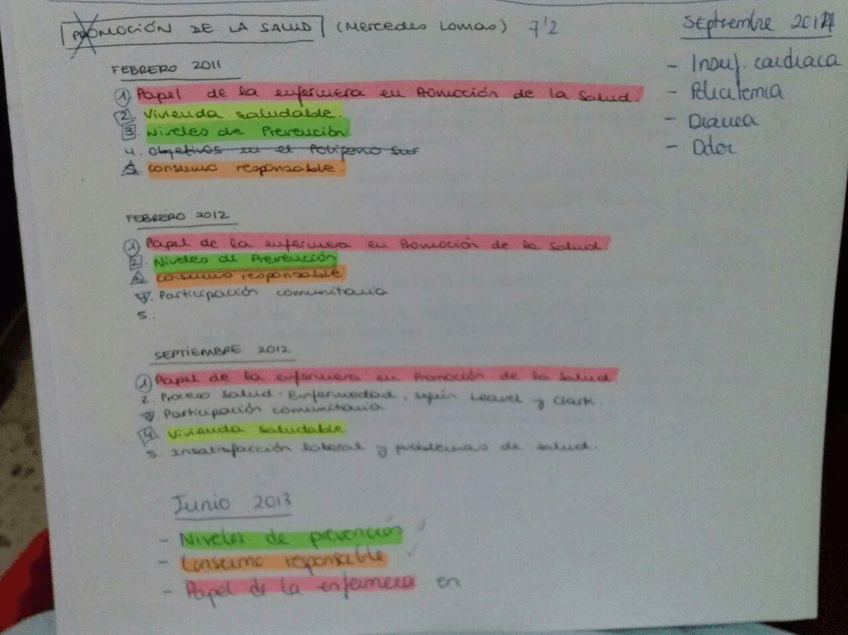 PROMOCIÓN DE LA SALUD (Mercedes Lomas) 7'2
FEBRERO 2011
1 Papel de la enfermera en Promoción de la Salud.
2. Vivienda saludable.
3 Niveles de Prevención
4. Objetivos en el Polígono Sur
5. Consumo responsable.
FEBRERO 2012
1 Papel de la enfermera en Promoción de la Salud
2. Niveles de Prevención
3. Consumo responsable
4. Participación comunitaria
5.
SEPTIEMBRE 2012
1 Papel de la enfermera en Promoción de la Salud
2. Proceso Salud-Enfermedad, según Leavel y Clark.
3. Participación comunitaria
4. Vivienda saludable
5. Insatisfacción laboral y problemas de salud.
Junio 2013
- Niveles de prevención
- Consumo responsable
- Papel de la enfermera en
Septiembre
- Insuf. cardiaca
- Policitemia
- Diarrea
- Dolor